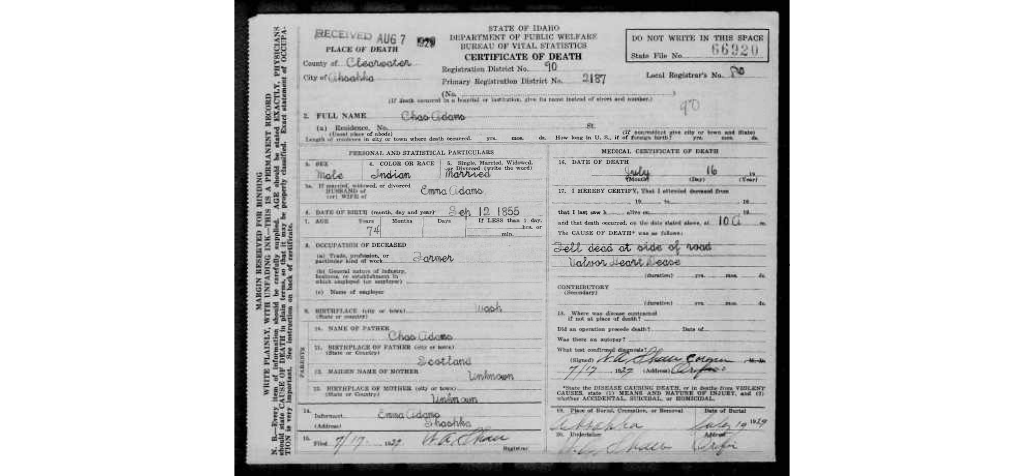 STATE OF IDAHO
DEPARTMENT OF PUBLIC WELFARE
BUREAU OF VITAL STATISTICS
CERTIFICATE OF DEATH
RECEIVED AUG 7 1929
PLACE OF DEATH
County of Clearwater
City of Ahsahka
Registration District No. 90
Primary Registration District No. 2187
DO NOT WRITE IN THIS SPACE
State File No. 66920
Local Registrar's No.
90
(No.
(If death occurred in a hospital or institution, give its name instead of street and number.)
2. FULL NAME Chas Adams
(a) Residence. No. St.
(Usual place of abode)
(If nonresident give city or town and State)
Length of residence in city or town where death occurred. yrs. mos. ds. How long in U. S., if of foreign birth? yrs. mos. ds.
PERSONAL AND STATISTICAL PARTICULARS
3. SEX
Male
4. COLOR OR RACE
Indian
5. Single, Married, Widowed, or Divorced (write the word)
Married
5a. If married, widowed, or divorced
HUSBAND of
(or) WIFE of
Emma Adams
6. DATE OF BIRTH (month, day and year) Sep 12 1855
7. AGE Years Months Days If LESS than 1 day,
74 hrs. or
min.
8. OCCUPATION OF DECEASED
(a) Trade, profession, or
particular kind of work Farmer
(b) General nature of industry,
business, or establishment in
which employed (or employer)
(c) Name of employer
9. BIRTHPLACE (city or town) Wash
(State or country)
PARENTS
10. NAME OF FATHER
Chas Adams
11. BIRTHPLACE OF FATHER (city or town)
(State or Country)
Scotland
12. MAIDEN NAME OF MOTHER
Unknown
13. BIRTHPLACE OF MOTHER (city or town)
(State or Country)
Unknown
14. Informant Emma Adams
(Address) Ahsahka
15. Filed 7/17 1929 W. A. Shaw
Registrar
MEDICAL CERTIFICATE OF DEATH
16. DATE OF DEATH
July 16 19
(Month) (Day) (Year)
17. I HEREBY CERTIFY, That I attended deceased from
19 to 19
that I last saw h alive on 19
and that death occurred, on the date stated above, at 10 a
The CAUSE OF DEATH* was as follows:
Fell dead at side of road
Valvor Heart Dease
(duration) yrs. mos. ds.
CONTRIBUTORY
(Secondary)
(duration) yrs. mos. ds.
18. Where was disease contracted
if not at place of death?
Did an operation precede death? Date of
Was there an autopsy?
What test confirmed diagnosis?
(Signed) W. A. Shaw Coroner M. D.
7/17 1929 (Address) Orofino
*State the DISEASE CAUSING DEATH, or in deaths from VIOLENT
CAUSES, state (1) MEANS AND NATURE OF INJURY, and (2)
whether ACCIDENTAL, SUICIDAL, or HOMICIDAL.
19. Place of Burial, Cremation, or Removal Date of Burial
Ahsahka July 19 1929
20. Undertaker Address
W. A. Shaw
MARGIN RESERVED FOR BINDING
WRITE PLAINLY, WITH UNFADING INK—THIS IS A PERMANENT RECORD
N. B.—Every item of information should be carefully supplied. AGE should be stated EXACTLY. PHYSICIANS
should state CAUSE OF DEATH in plain terms, so that it may be properly classified. Exact statement of OCCUPA-
TION is very important. See instruction on back of certificate.